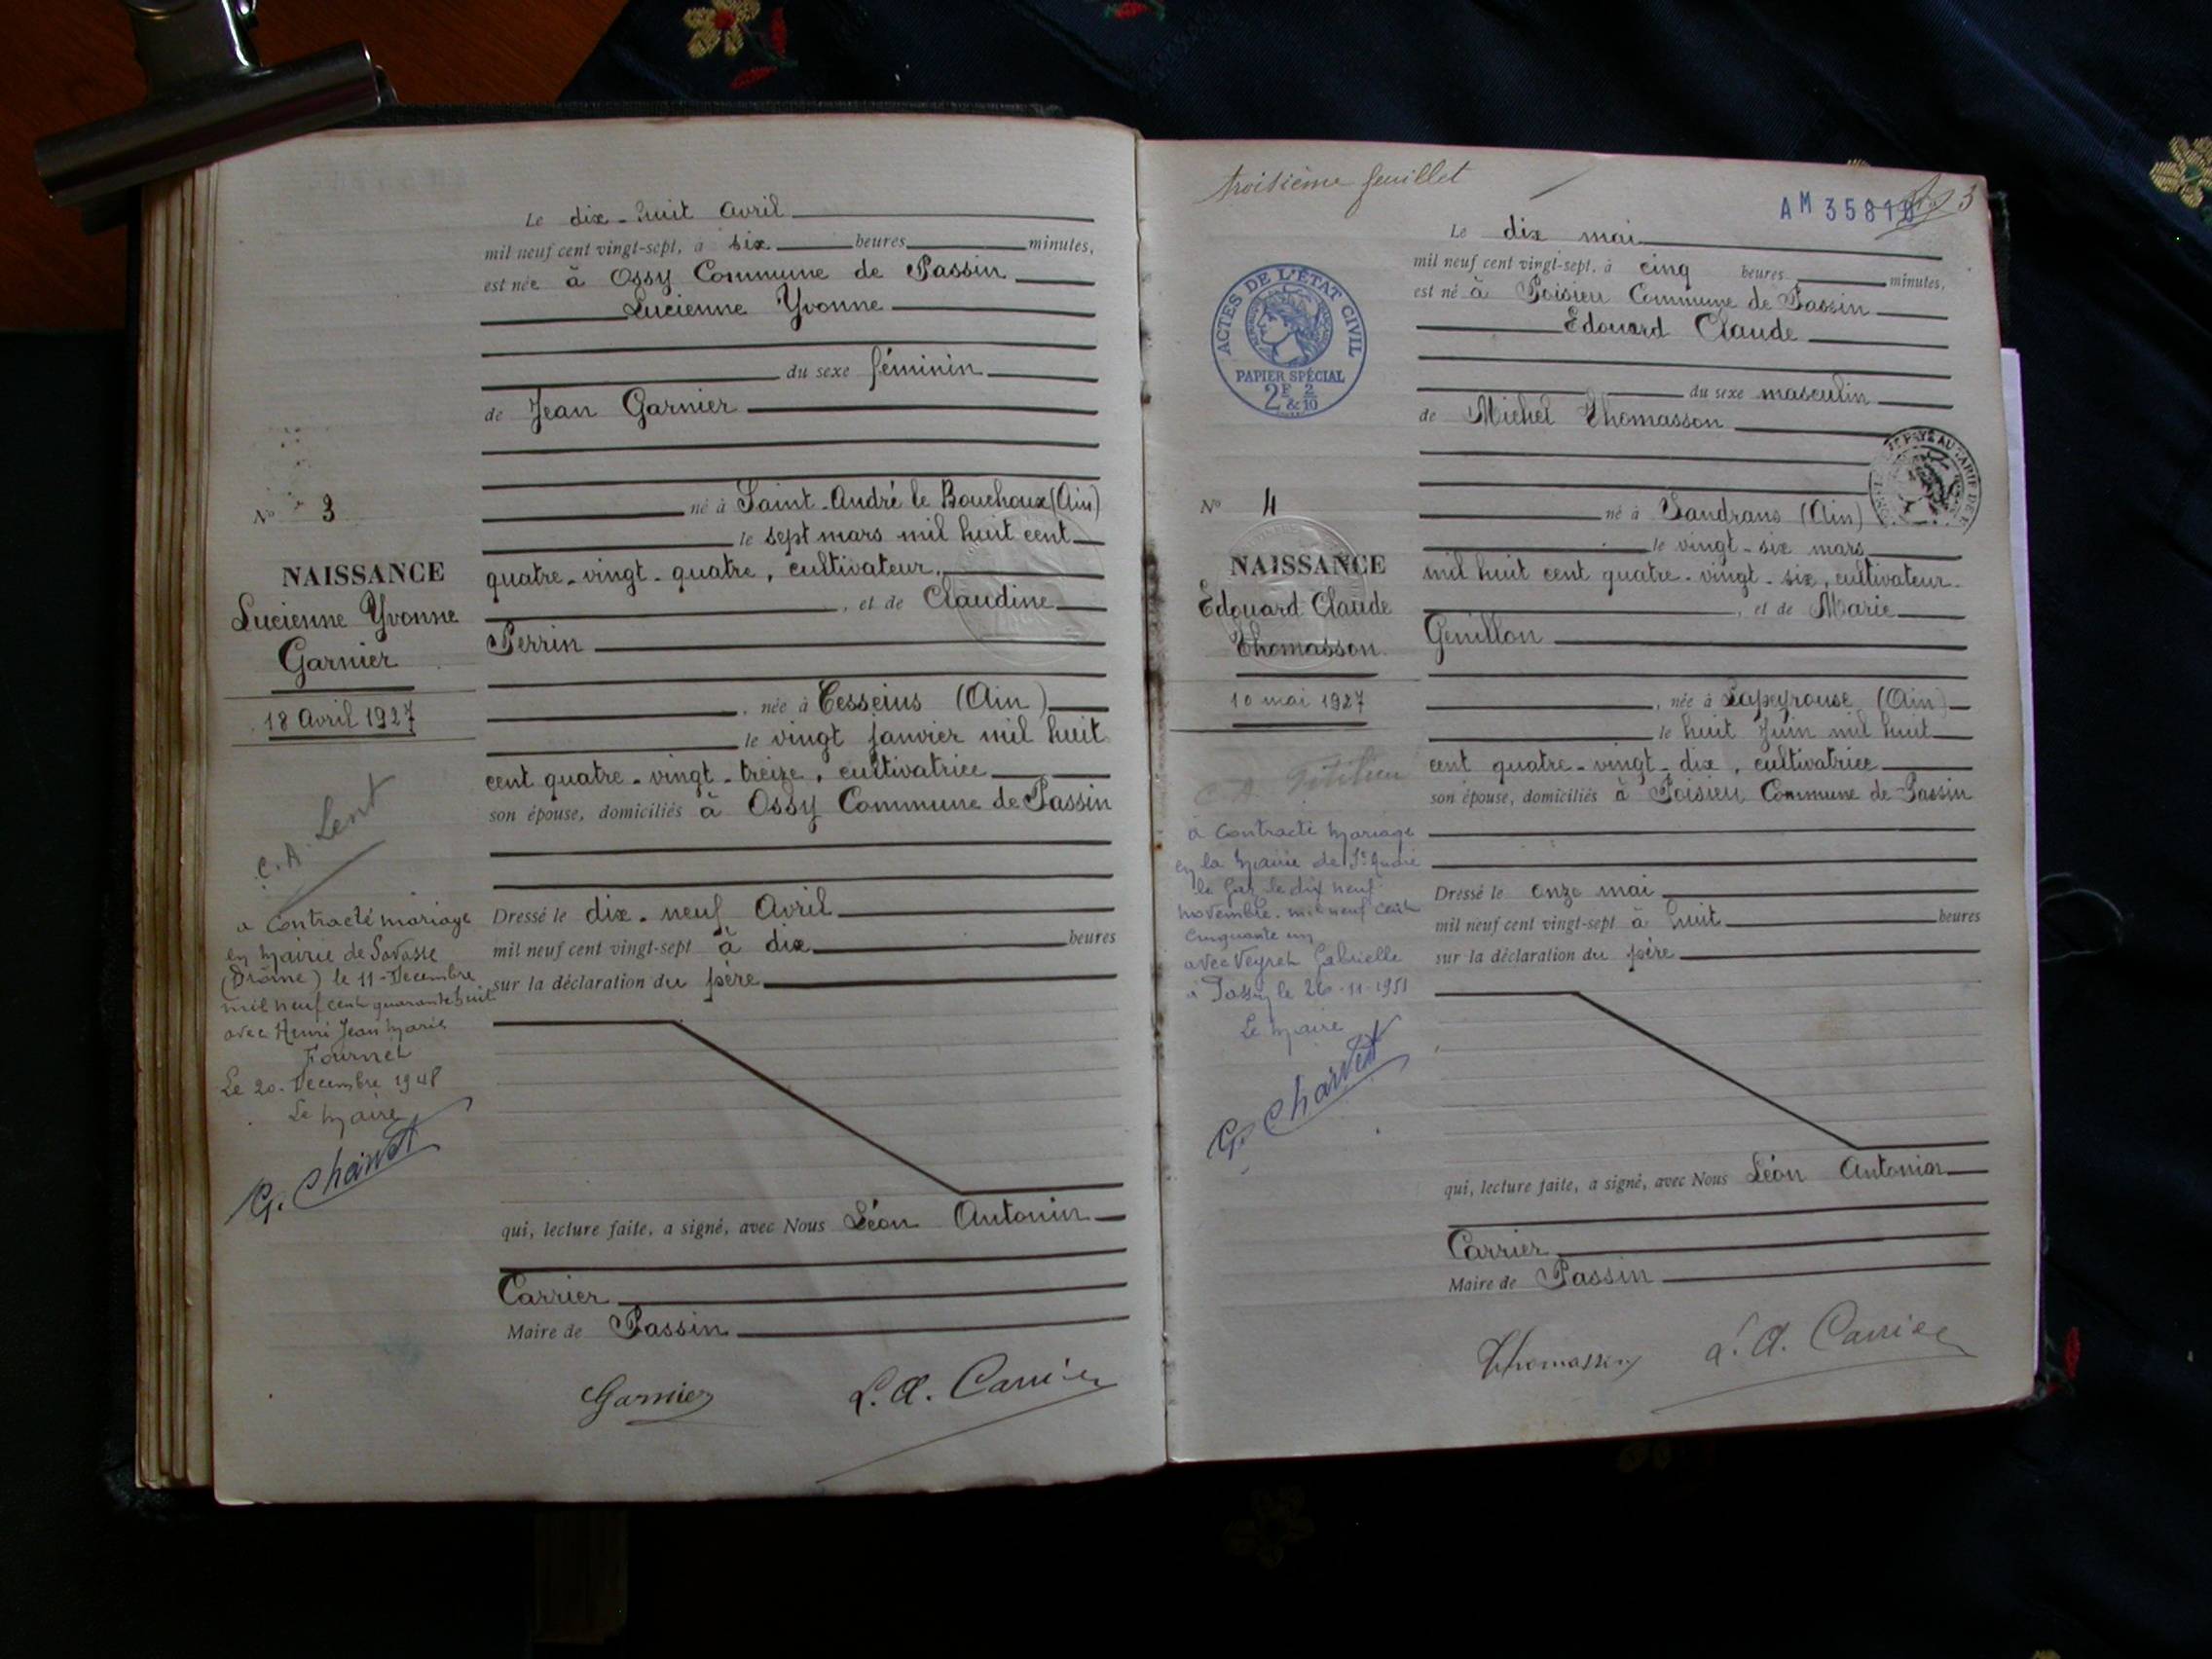 Le dix-huit Avril
mil neuf cent vingt-sept, à six heures minutes,
est née à Ossy Commune de Passin
Lucienne Yvonne
du sexe féminin
de Jean Garnier
né à Saint-André le Bouchoux (Ain)
le sept mars mil huit cent
quatre-vingt-quatre, cultivateur,
, et de Claudine
Perrin
, née à (Ain)
le vingt janvier mil huit
cent quatre-vingt-treize, cultivatrice
son épouse, domiciliés à Ossy Commune de Passin
Dressé le dix-neuf Avril
mil neuf cent vingt-sept à dix heures
sur la déclaration du père
qui, lecture faite, a signé, avec Nous Léon Antonin
Carrier
Maire de Passin
Garnier L. A. Carrier
No 3
NAISSANCE
Lucienne Yvonne
Garnier
18 Avril 1927
C. A. Lent
a Contracté mariage
en Mairie de Savasse
(Drôme) le 11-Decembre
mil neuf cent quarante huit
avec Henri Jean Marie
Fournel
Le 20-Decembre 1948
Le Maire
G. Charvet
troisième feuillet
AM 35818
3
Le dix mai
mil neuf cent vingt-sept, à cinq heures minutes,
est né à Poisieu Commune de Passin
Edouard Claude
du sexe masculin
de Michel Thomasson
né à Sandrans (Ain)
le vingt-six mars
mil huit cent quatre-vingt-six, cultivateur
, et de Marie
Genillon
, née à Lapeyrouse (Ain)
le huit Juin mil huit
cent quatre-vingt-dix, cultivatrice
son épouse, domiciliés à Poisieu Commune de Passin
Dressé le onze mai
mil neuf cent vingt-sept à huit heures
sur la déclaration du père
qui, lecture faite, a signé, avec Nous Léon Antonin
Carrier
Maire de Passin
Thomasson L. A. Carrier
ACTES DE L'ÉTAT CIVIL
PAPIER SPÉCIAL
2F 2
& 10
No 4
NAISSANCE
Edouard Claude
Thomasson
10 mai 1927
C. A.
a Contracté Mariage
en la Mairie de St André
le Gaz le dix neuf
Novembre mil neuf cent
Cinquante un
avec Veyret Gabrielle
à Passin le 26-11-1951
Le Maire
G. Charvet